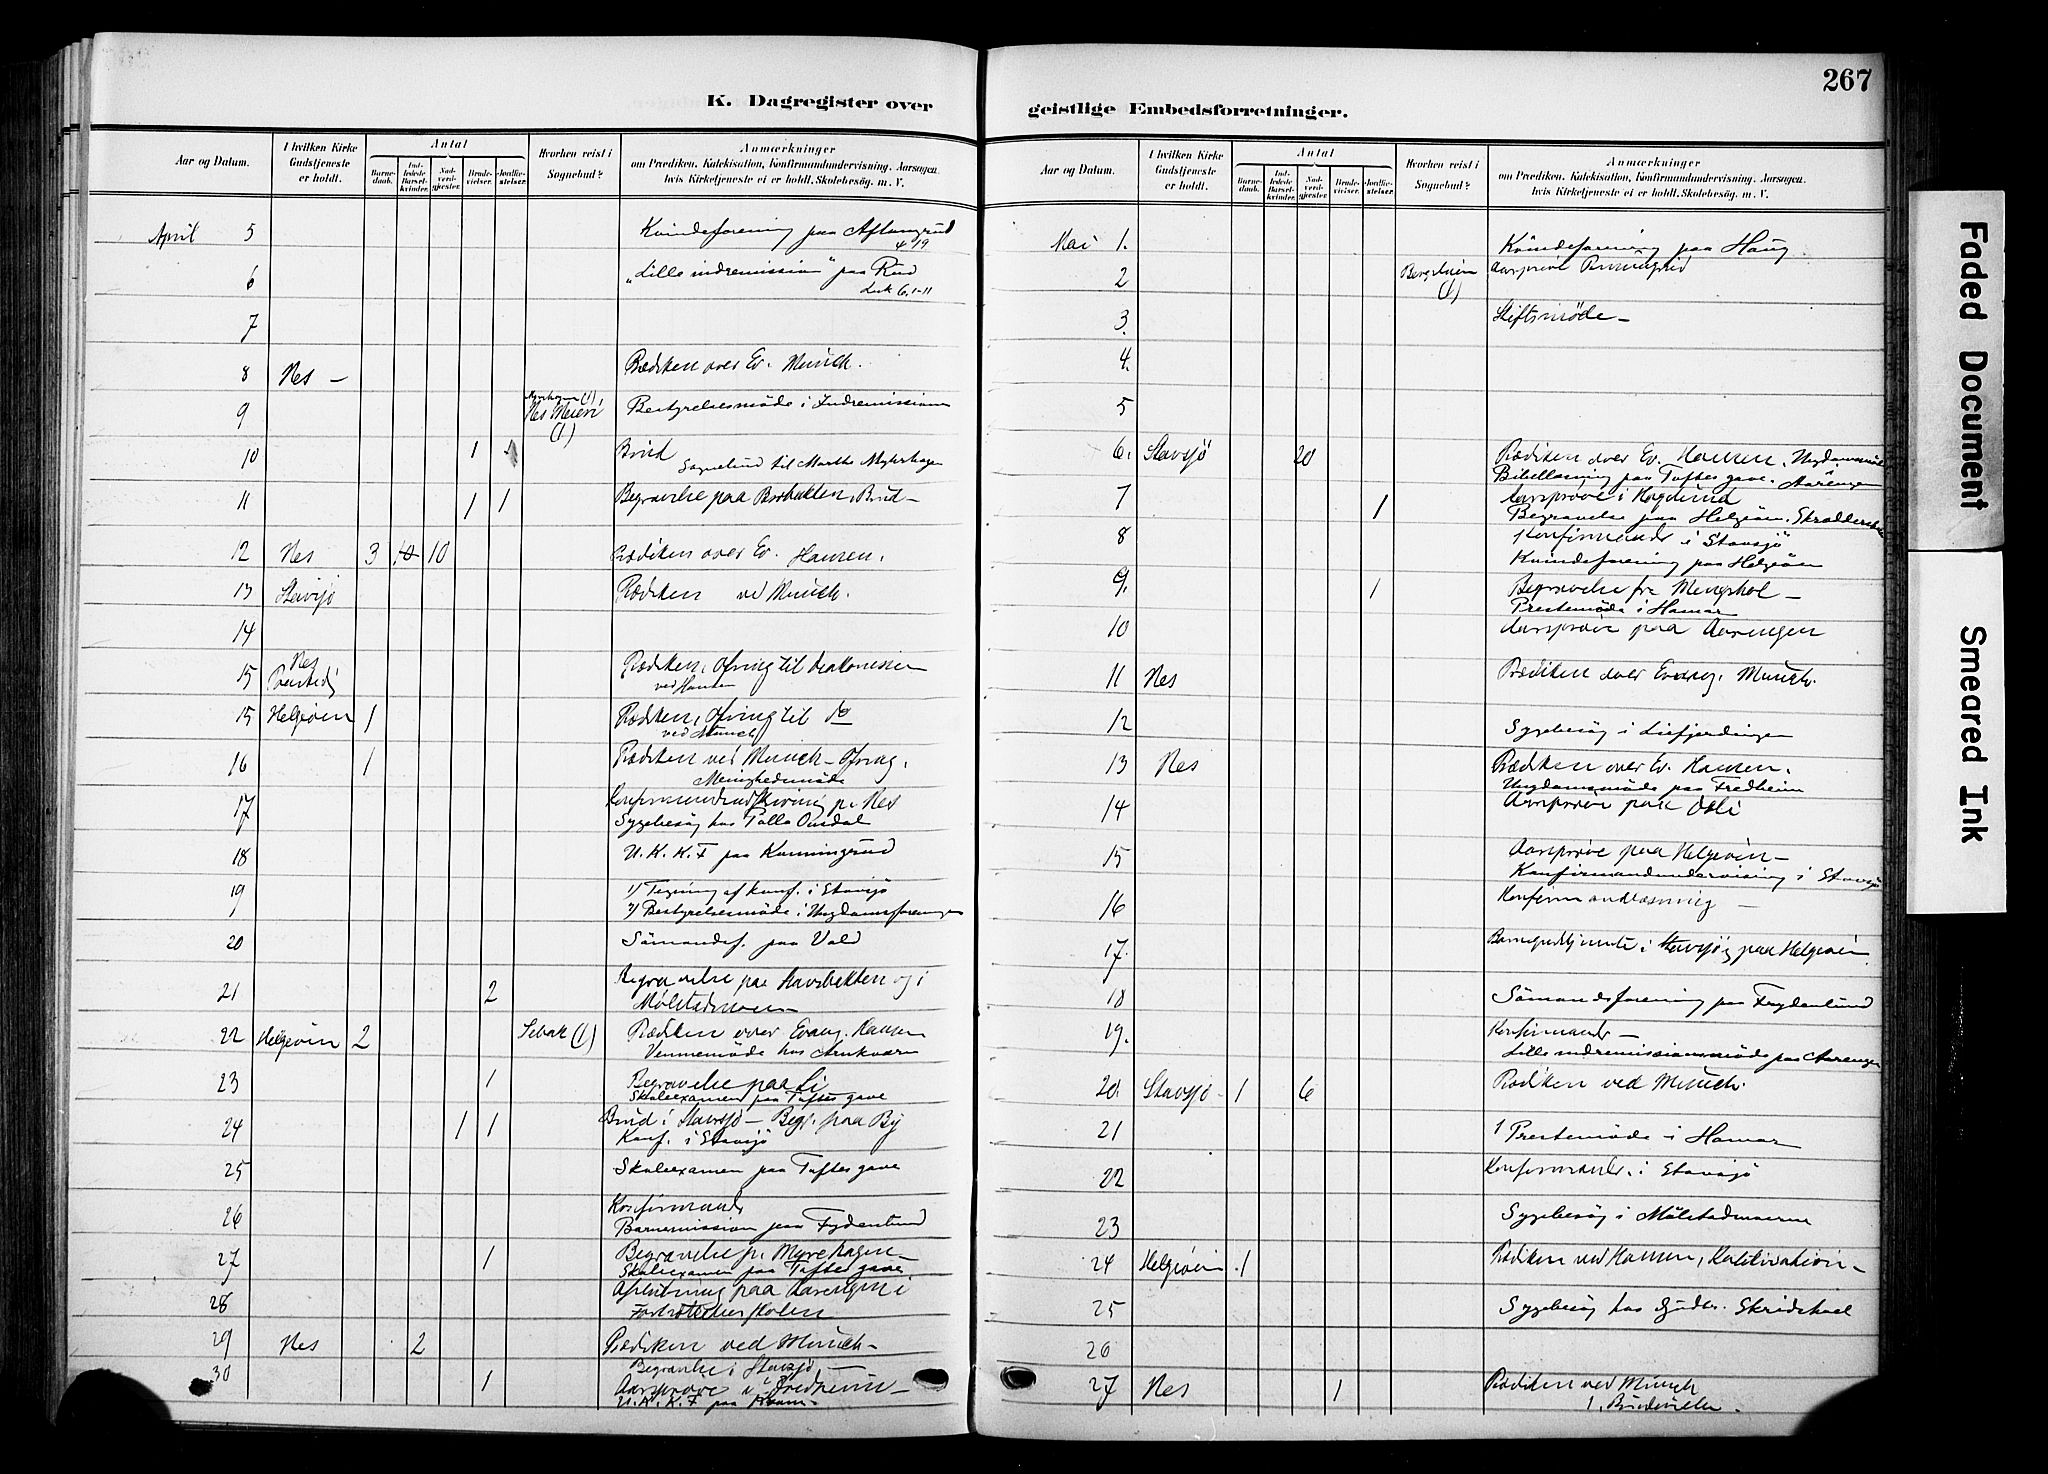 267
K. Dagregister over
Aar og Datum.
I hvilken Kirke Gudstjeneste er holdt.
Antal
Barnedaab.
Indledede Barselkvinder.
Nadverdgjester.
Brudevielser.
Jordfæstelser.
Hvorhen reist i Sognebud?
Anmærkninger
om Prædiken, Katekisation, Konfirmandundervisning, Aarsagen,
hvis Kirketjeneste ei er holdt, Skolebesøg, m. V.
April 5 Kvindeforening paa Aflangrud
4 19
6 "Lille indremission" paa Rud
Luk 6, 1-11
7
8 Nes — Prædiken over Ev. Munch.
9 Nes Meieri (1) Bestyrelsesmøde i Indremission
10 1 Brud
Sognebud til Marthe Myhrhagen
11 1 1 Begravelse paa Brud —
12 Nes 3 10 10 Prædiken over Ev. Hansen.
13 Stavsjø Prædiken ved Munch.
14
15 Nes Prædiken, Ofring til
ved Hansen
15 Helgeøen 1 Prædiken, Ofring til do
ved Munch
16 1 Prædiken ved Munch — Ofring.
Menighedsmøde
17 p. Nes
Sygebesøg hos
18 U. K. K. F paa
19 1) Tegning af konf. i Stavsjø
2) Bestyrelsesmøde i Ungdomsforeningen
20 Sømandsf. paa Vold
21 2 Begravelse paa og i
Mølstadmoen
22 Helgeøen 2 (1) Prædiken over Evang. Hansen
Vennemøde hos
23 1 Begravelse paa Li
Skoleexamen paa Toftes gave
24 1 1 Brud i Stavsjø — Begr. paa By
Konf. i Stavsjø
25 Skoleexamen paa Toftes gave
26 Konfirmander
Barnemission paa Frydenlund
27 1 Begravelse p. Myrehagen —
Skoleexamen paa Toftes gave
28 Afslutning paa i
29 Nes 2 Prædiken ved Munch —
30 1 Begravelse i Stavsjø —
Aarsprøve
U. K. K. F paa
geistlige Embedsforretninger.
Aar og Datum.
I hvilken Kirke Gudstjeneste er holdt.
Antal
Barnedaab.
Indledede Barselkvinder.
Nadverdgjester.
Brudevielser.
Jordfæstelser.
Hvorhen reist i Sognebud?
Anmærkninger
om Prædiken, Katekisation, Konfirmandundervisning, Aarsagen,
hvis Kirketjeneste ei er holdt, Skolebesøg, m. V.
Mai 1. Kvindeforening paa Haug
2 (1) Aarsprøve
3. Stiftsmøde —
4.
5
6. Stavsjø 20 Prædiken over Ev. Hansen.
Bibellæsning paa Toftes gave.
7 1 Aarsprøve i
Begravelse paa Helgeøen.
8 Konfirmander i Stavsjø
Kvindeforening paa Helgeøen
9. 1 Begravelse fra Mengshol —
Prestemøde i Hamar
10 Aarsprøve paa Aarengen
11 Nes Prædiken over Evang. Munch.
12 Sygebesøg i
13 Nes Prædiken over Ev. Hansen.
Ungdomsmøde paa Fredheim
14 Aarsprøve paa
15 Aarsprøve paa Helgeøen —
Konfirmandundervisning i Stavsjø
16 Konfirmandlæsning —
17. Barnegudstjeneste i Stavsjø paa Helgeøen
18 Sømandsforening paa Frydenlund
19. Konfirmander —
Lille indremissionsmøde paa Aarengen
20. Stavsjø 1 6 Prædiken ved Munch.
21 Prestemøde i Hamar
22 Konfirmander i Stavsjø
23 Sygebesøg i Mølstadmoerne
24 Helgeøen 1 Prædiken ved Hansen,
25 Sygebesøg hos
26
27 Nes 1 Prædiken ved Munch
1. Brudevielse.
Faded Document
Smeared Ink